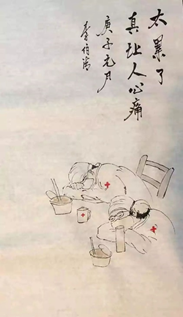 太累了
真让人心痛
庚子元月